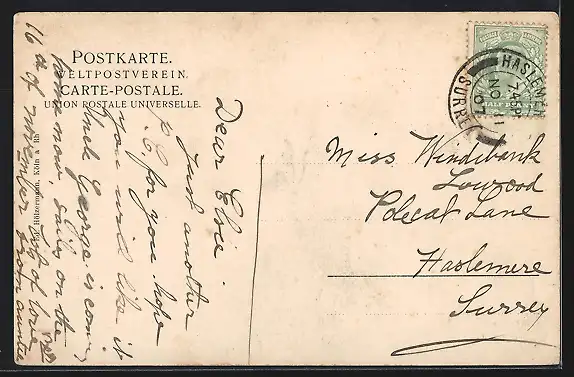 POSTKARTE.
WELTPOSTVEREIN.
CARTE-POSTALE.
UNION POSTALE UNIVERSELLE.
Dear Elsie.
Just another
P.C. for you. hope
you will like it
Uncle George is coming
home now, sails on the
16th of November
lots of love
from auntie
Miss Windebank
Lowood
Polecat Lane
Haslemere
Surrey
HASLEMERE
NO 11
07
SURREY
HALF PENNY
Hölzermann, Köln a. Rh.